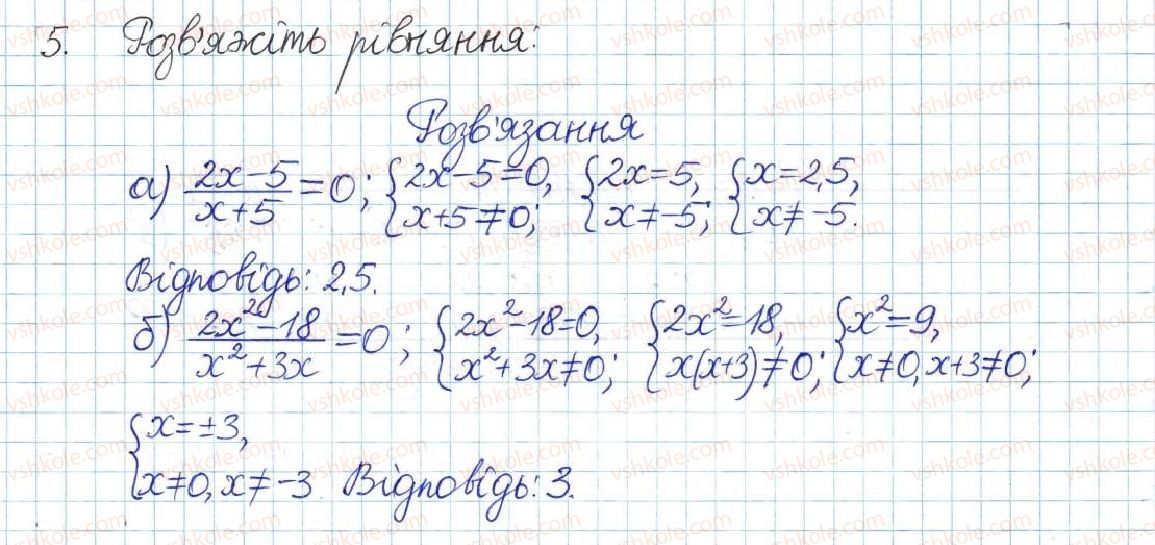 5. Розв'яжіть рівняння:
Розв'язання
а) (2x-5)/(x+5) = 0; {2x-5=0, x+5≠0; {2x=5, x≠-5; {x=2,5, x≠-5.
Відповідь: 2,5.
б) (2x²-18)/(x²+3x) = 0; {2x²-18=0, x²+3x≠0; {2x²=18, x(x+3)≠0; {x²=9, x≠0, x+3≠0;
{x=±3, x≠0, x≠-3 Відповідь: 3.
vshkole.com